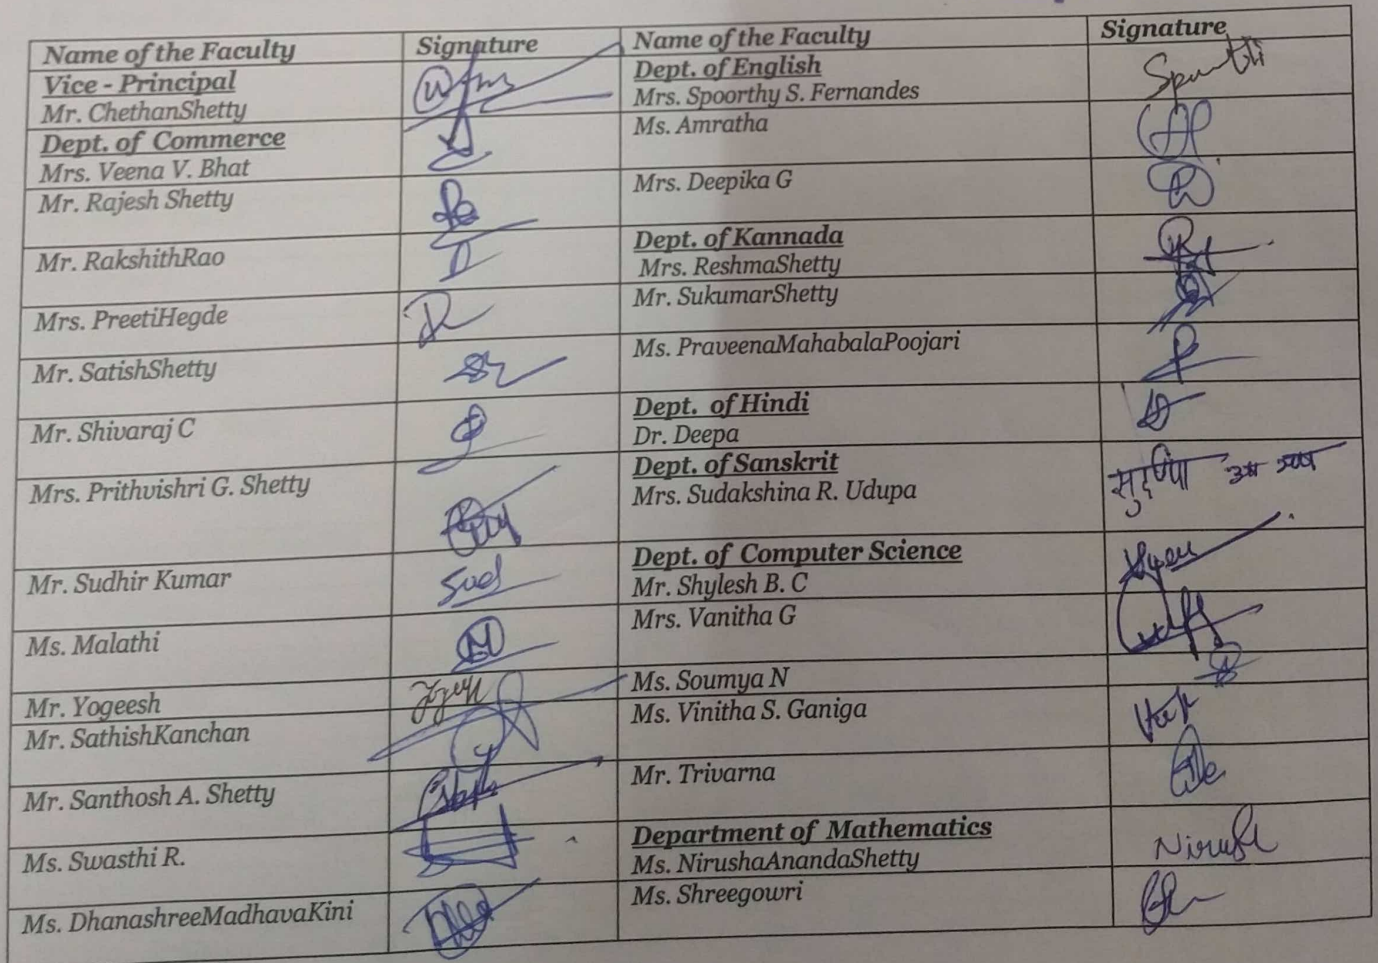 Name of the Faculty Signature Name of the Faculty Signature
Vice - Principal
Mr. ChethanShetty
Dept. of English
Mrs. Spoorthy S. Fernandes
Dept. of Commerce
Mrs. Veena V. Bhat
Ms. Amratha
Mr. Rajesh Shetty
Mrs. Deepika G
Mr. RakshithRao
Dept. of Kannada
Mrs. ReshmaShetty
Mrs. PreetiHegde
Mr. SukumarShetty
Mr. SatishShetty
Ms. PraveenaMahabalaPoojari
Mr. Shivaraj C
Dept. of Hindi
Dr. Deepa
Mrs. Prithvishri G. Shetty
Dept. of Sanskrit
Mrs. Sudakshina R. Udupa
Mr. Sudhir Kumar
Dept. of Computer Science
Mr. Shylesh B. C
Ms. Malathi
Mrs. Vanitha G
Mr. Yogeesh
Ms. Soumya N
Mr. SathishKanchan
Ms. Vinitha S. Ganiga
Mr. Santhosh A. Shetty
Mr. Trivarna
Ms. Swasthi R.
Department of Mathematics
Ms. NirushaAnandaShetty
Ms. DhanashreeMadhavaKini
Ms. Shreegowri